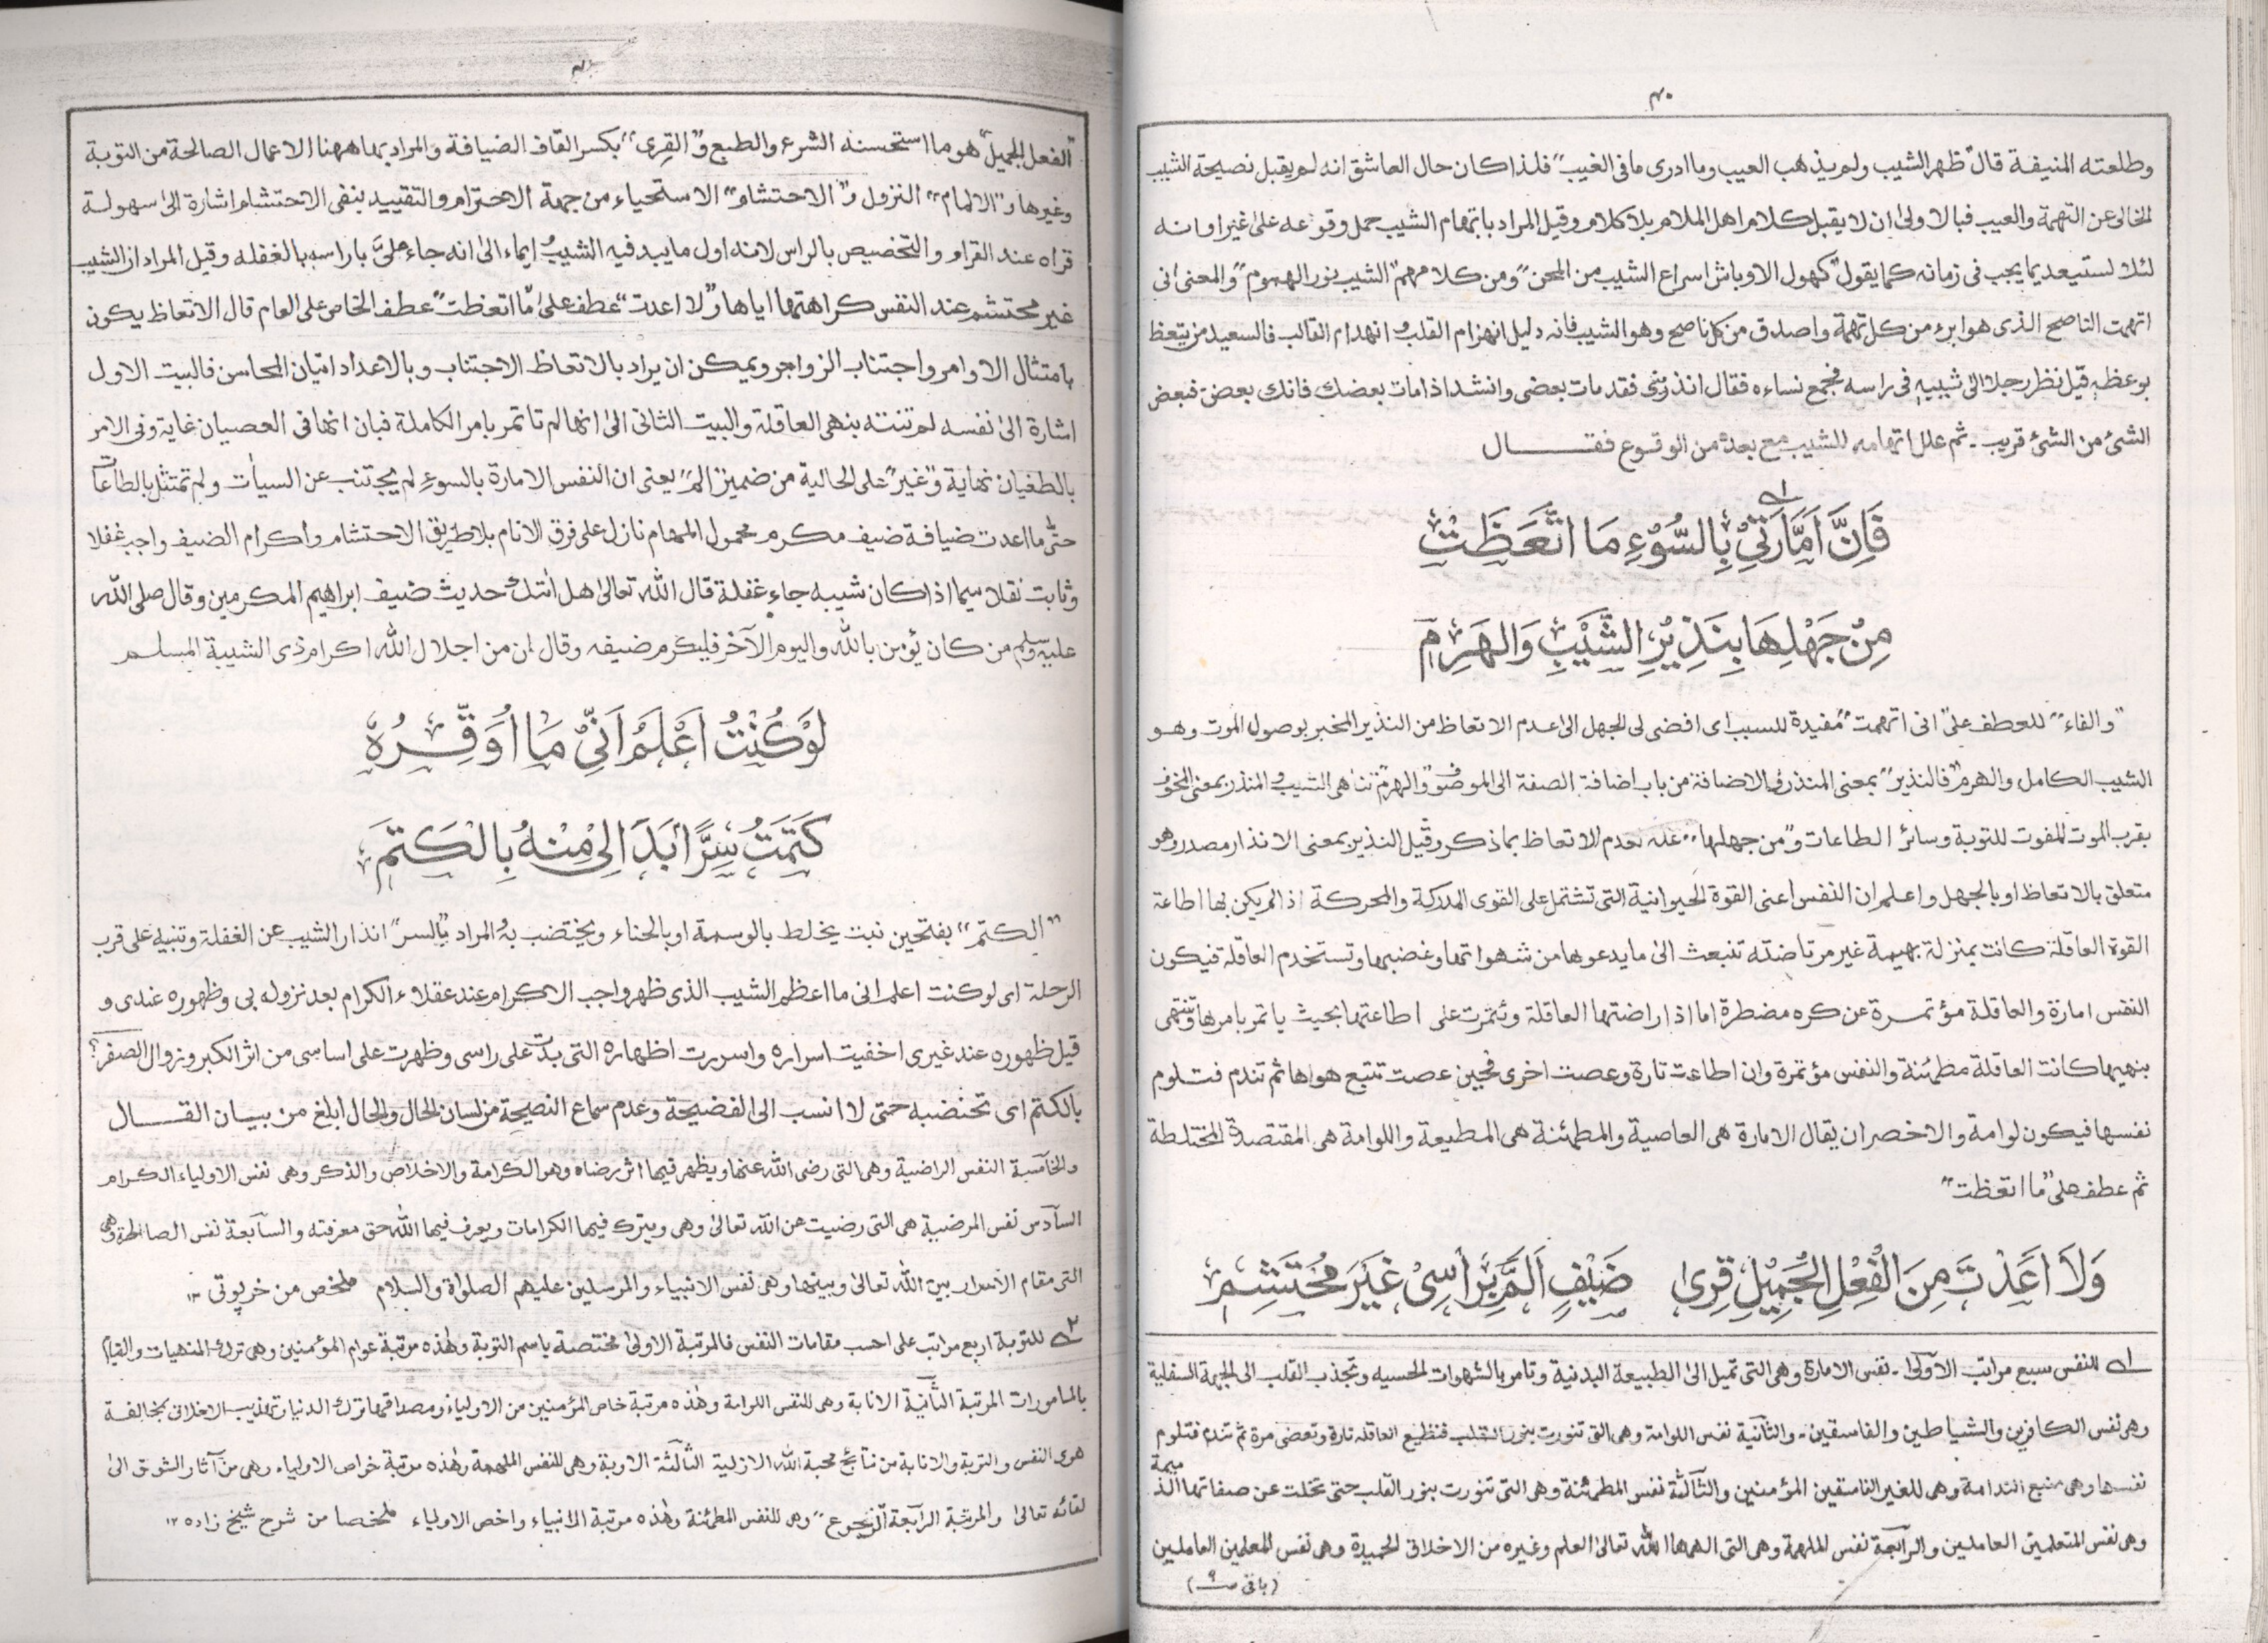 ۴۰
وطلعته المنيفة قال "ظهر الشيب ولم يذهب العيب وما ادرى ما فى الغيب" فلذا كان حال العاشق انه لم يقبل نصيحة الشيب
الخالى عن التهمة والعيب فبالاولى ان لا يقبل كلام اهل الملام بلا كلام وقيل المراد باتهام الشيب حمل وقوعه على غير اوانه
لئلا لستبعد بما يجب فى زمانه كما يقول "كهول الاوباش اسراع الشيب من المحن" ومن كلامهم "الشيب نور الهموم" والمعنى انى
اتهمت الناصح الذى هو ابرء من كل تهمة واصدق من كل ناصح وهو الشيب فانه دليل انهزام القلب و انهدام القالب فالسعيد من يتعظ
بوعظه قيل نظر رجل الى شيبه فى راسه فجمع نساءه فقال اندبننى فقد مات بعضى وانشد اذا مات بعضك فابك بعض فبعض
الشئ من الشئ قريب ـ ثم علل اتهامه للشيب مع بعده من الوقوع فقـــال
فَاِنَّ اَمَّارَتِىْ بِالسُّوْءِ مَا اتَّعَظَتْ ۱ے
مِنْ جَهْلِهَا بِنَذِيْرِ الشَّيْبِ وَالهَرِمِ
"والفاء" للعطف على "انى اتهمت" مفيدة للسبب اى افضى لى الجهل الى عدم الاتعاظ من النذير المخبر بوصول الموت وهو
الشيب الكامل والهرم "فالنذير" بمعنى المنذر فى الاضافة من باب اضافة الصفة الى الموصوف و"الهرم" تناهى الشيب و المنذر بمعنى المخوف
بقرب الموت المفوت للتوبة وسائر الطاعات و"من جهلها" علة لعدم الاتعاظ بما ذكر وقيل النذير بمعنى الانذار مصدر وهو
متعلق بالاتعاظ او بالجهل واعلم ان النفس اعنى القوة الحيوانية التى تشتمل على القوى المدركة والمحركة اذا لم يكن بها اطاعة
القوة العاقلة كانت بمنزلة بهيمة غير مرتاضة تنبعث الى ما يدعوها من شهواتها وغضبها وتستخدم العاقلة فيكون
النفس امارة والعاقلة مؤتمرة عن كره مضطرة اما اذا راضتها العاقلة وتمرت على اطاعتها بحيث ياتمر بامرها وتنتهى
بنهيها كانت العاقلة مطمئنة والنفس مؤتمرة وان اطاعت تارة وعصت اخرى فحين عصت تتبع هواها ثم تندم فتلوم
نفسها فيكون لوامة والاخصر ان يقال الامارة هى العاصية والمطمئنة هى المطيعة واللوامة هى المقتصدة المختلطة
ثم عطف على "ما اتعظت"
وَلَا اَعَدَّتْ مِنَ الْفِعْلِ الْجَمِيْلِ قِرٰى ضَيْفٍ اَلَمَّ بِرَأْسِىْ غَيْرَ مُحْتَشِمٖ
۱ے للنفس سبع مراتب الاولى ـ نفس الامارة وهى التى تميل الى الطبيعة البدنية وتامر بالشهوات الحسيه وتجذب القلب الى الجهة السفلية
وهى نفس الكافرين والشياطين والفاسقين ـ والثانية نفس اللوامة وهى التى تنورت بنور القلب فتطيع العاقلة تارة وتعصى مرة ثم تندم فتلوم
نفسها وهى منبع الندامة وهى للغير الفاسقين المؤمنين والثالثة نفس المطمئنة وهى التى تنورت بنور القلب حتى تخلت عن صفاتها الذميمة
وهى نفس المتعلمين العاملين والرابعة نفس الملهمة وهى التى الهمها الله تعالى العلم وغيره من الاخلاق الحميدة وهى نفس المعلمين العاملين
(باقى ۹)
"الفعل الجميل" هو ما استحسنه الشرع والطبع و"القِرى" بكسر القاف الضيافة والمراد بها ههنا الاعمال الصالحة من التوبة
وغيرها و"الالمام" النزول و"الاحتشام" الاستحياء من جهة الاحترام والتقييد بنفى الاحتشام اشارة الى سهولة
قراه عند القرام والتخصيص بالراس لانه اول ما يبد فيه الشيب ايماء الى انه جاء على بار اسه بالغفلة وقيل المراد ان الشيب
غير محتشم عند النفس كراهتها اياها و"لا اعدت" عطف على "ما اتعظت" عطف الخاص على العام قال الاتعاظ يكون
بامتثال الاوامر واجتناب الزواجر ويمكن ان يراد بالاتعاظ الاجتناب وبالاعداد اتيان المحاسن فالبيت الاول
اشارة الى نفسه لم تنته بنهى العاقلة والبيت الثانى الى انها لم تاتمر بامر الكاملة فبان انها فى العصيان غاية وفى الامر
بالطغيان نهاية و"غير" على الحالية من ضمير "الم" يعنى ان النفس الامارة بالسوء لم يجتنب عن السيأت ولم تمتثل بالطاعات
حتى ما اعدت ضيافة ضيف مكرم محمول المهام نازل على فرق الانام بلا طريق الاحتشام واكرام الضيف واجب غفلا
وثابت نقلا سيما اذا كان شيبه جاء غفلة قال الله تعالى هل اتٰىك حديث ضيف ابراهيم المكرمين وقال صلى الله
عليه وسلم من كان يؤمن بالله واليوم الآخر فليكرم ضيفه وقال ان من اجلال الله اكرام ذى الشيبة المسلم
لَوْ كُنْتُ اَعْلَمُ اَنِّىْ مَا اُوَقِّرُهٗ
كَتَمْتُ سِرًّا بَدَا لِىْ مِنْهُ بِالْكَتَمِ
"الكتم" بفتحين نبت يخلط بالوسمة او بالحناء ويختضب به المراد بالسر" انذار الشيب عن الغفلة وتنبيه على قرب
الرحلة اى لو كنت اعلم انى ما اعظم الشيب الذى ظهر واجب الاكرام عند عقلاء الكرام بعد نزوله بى وظهوره عندى و
قبل ظهوره عند غيرى اخفيت اسراره واسررت اظهاره التى بدت على راسى وظهرت على اساسى من اثر الكبر وزوال الصفر؟
بالكتم اى تخضبه حتى لا انسب الى الفضيحة وعدم سماع النصيحة من لسان الحال والحال ابلغ من بيـان القـــال
والخامسة النفس الراضية وهى التى رضى الله عنها ويظهر فيها اثر رضاه وهو الكرامة والاخلاص والذكر وهى نفس الاولياء الكرام
السادس نفس المرضية هى التى رضيت عن الله تعالى وهى ويترك فيها الكرامات ويعرف فيها الله حق معرفته والسابعة نفس الصالحة وهى
التى مقام الاسرار بين الله تعالى وبينها وهى نفس الانبياء والمرسلين عليهم الصلوٰة والسلام ملخص من خرپوتى ۱۲
۲ے للتوبة اربع مراتب على احسب مقامات النفس فالمرتبة الاولى مختصة باسم التوبة وهٰذه مرتبة عوام المؤمنين وهى ترك المنهيات والقيام
بالمامورات المرتبة الثانية الانابة وهى للنفس اللوامة وهٰذه مرتبة خاص المؤمنين من الاولياء ومصداقها ترك الدنيا وتهذيب الاخلاق بمخالفة
هوى النفس والتوبة والانابة من نتائج محبة الله الازلية الثالثة الاوبة وهى للنفس الملهمة وهٰذه مرتبة خواص الاولياء وهى من آثار الشوق الى
لقائه تعالى والمرتبة الرابعة "الرجوع" وهى للنفس المطمئنة وهٰذه مرتبة الانبياء واخص الاولياء ملخصا من شرح شيخ زاده ۱۲